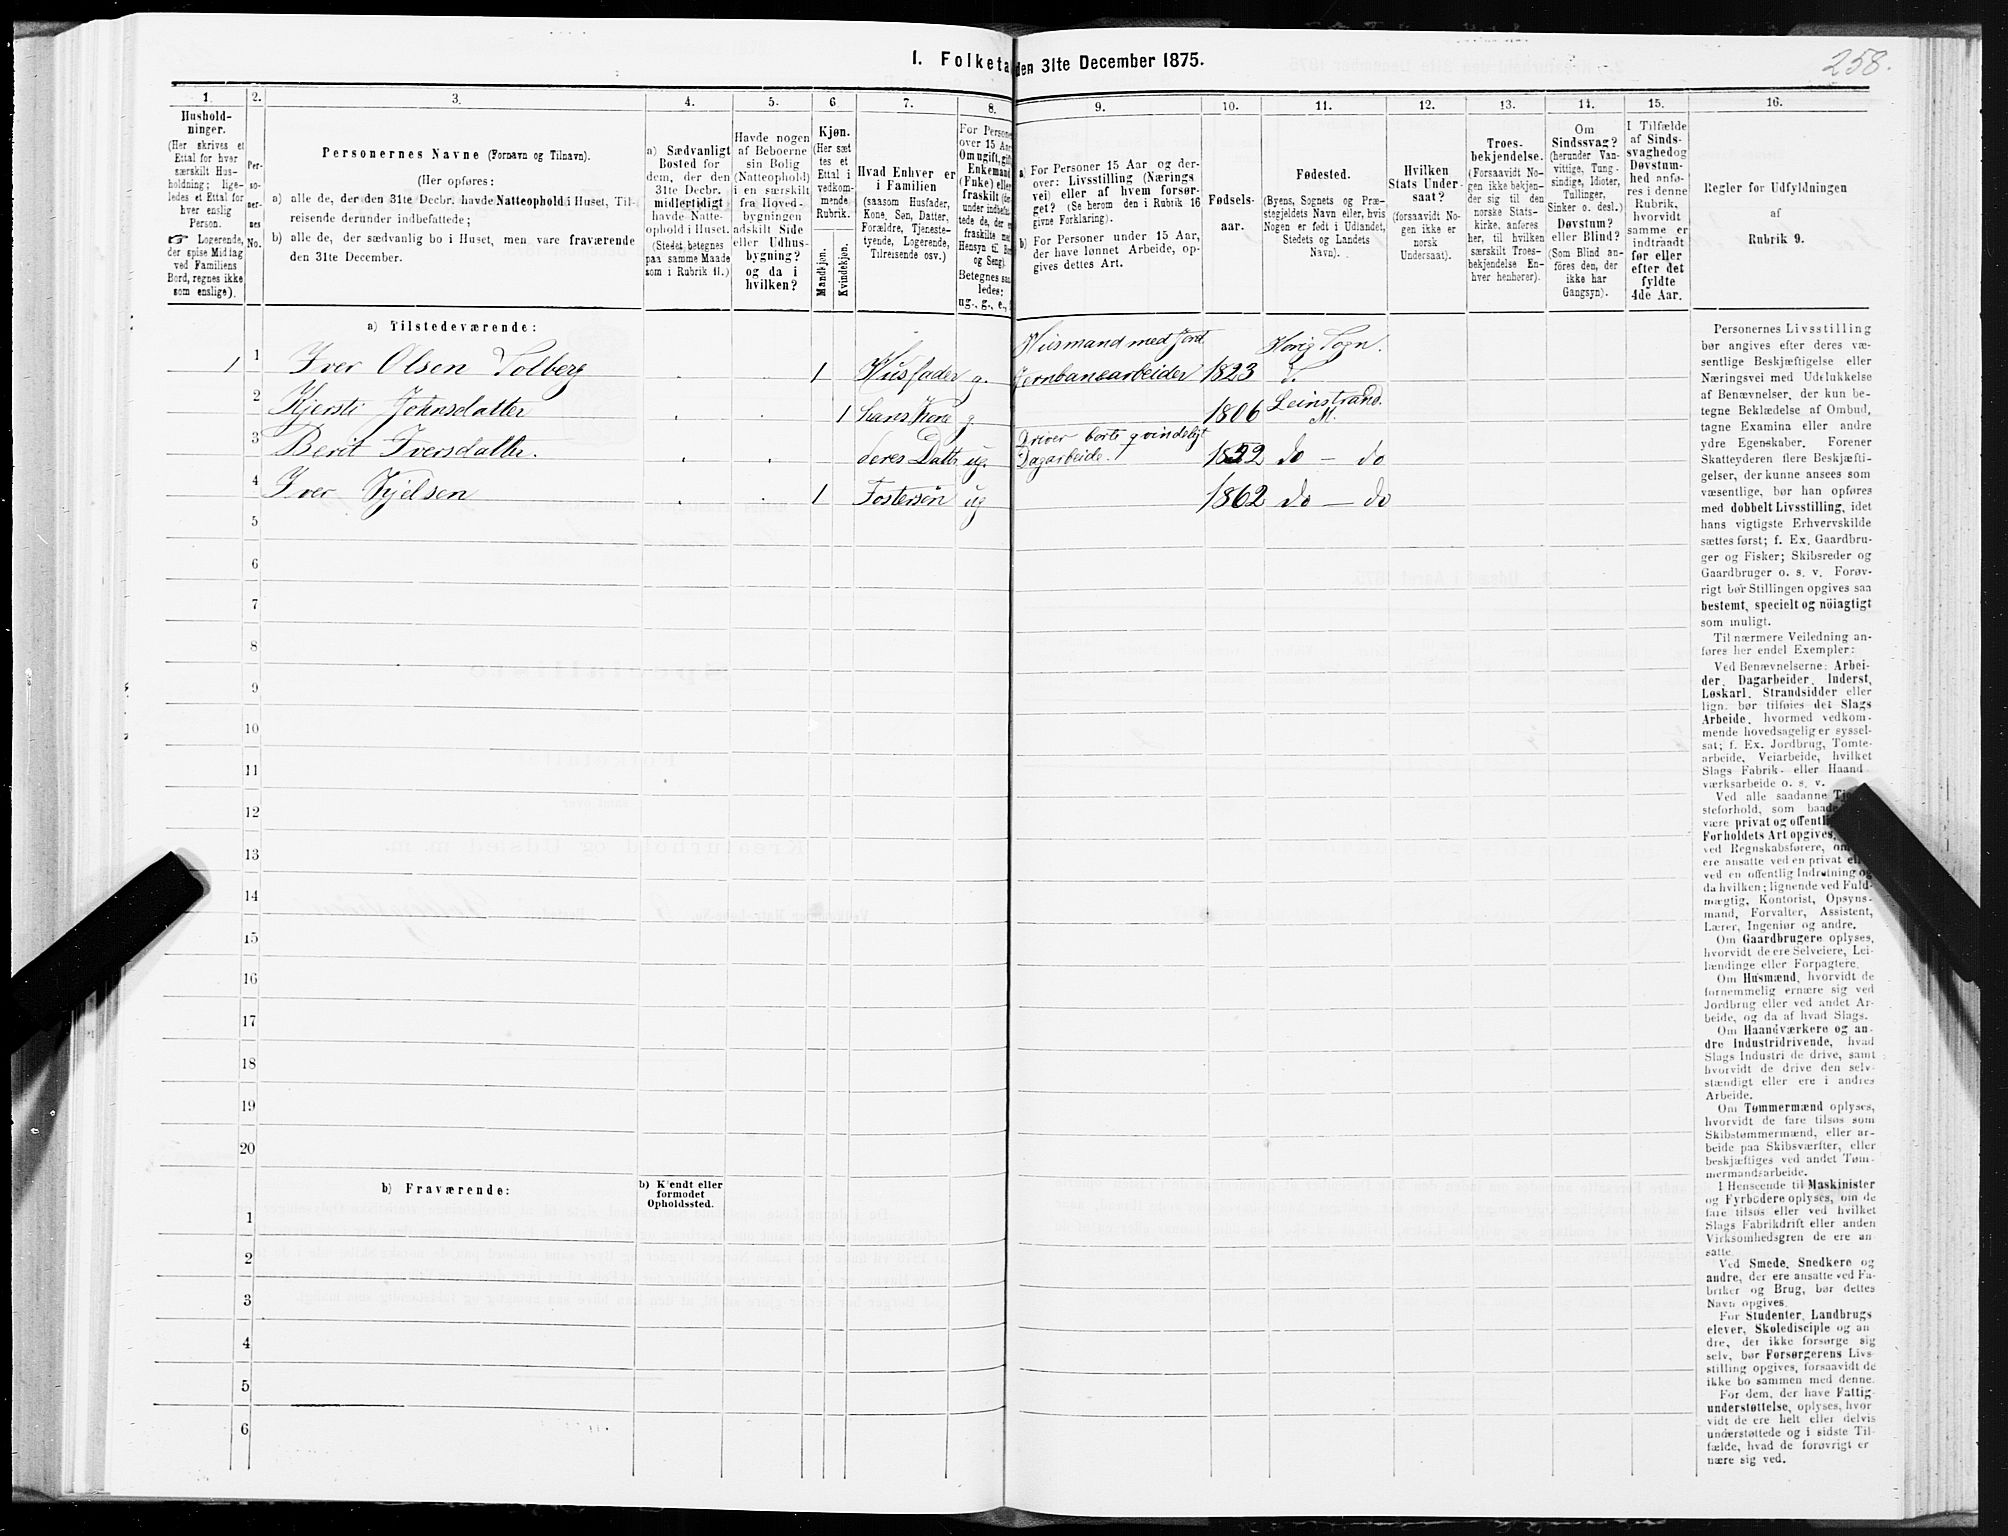 258.
I. Folketa den 31te December 1875.
1. 2. 3. 4. 5. 6 7. 8. 9. 10. 11. 12. 13. 14. 15. 16.
Hushold-
ninger.
(Her skrives et
Ettal for hver
særskilt Hus-
holdning; lige-
ledes et Ettal for
hver enslig
Person.
☞ Logerende,
der spise Middag
ved Familiens
Bord, regnes ikke
som enslige).
Per-
so-
ner-
nes
No.
Personernes Navne (Fornavn og Tilnavn).
(Her opføres:
a) alle de, der den 31te Decbr. havde Natteophold i Huset, Til-
reisende derunder indbefattede;
b) alle de, der sædvanlig bo i Huset, men vare fraværende
den 31te December.
a) Sædvanligt
Bosted for
dem, der den
31te Decbr.
midlertidigt
havde Natte-
ophold i Huset.
(Stedet betegnes
paa samme Maade
som i Rubrik 11.)
Havde nogen
af Beboerne
sin Bolig
(Natteophold)
i en særskilt
fra Hoved-
bygningen
adskilt Side
eller Udhus-
bygning?
og da i
hvilken?
Kjøn.
(Her sæt
tes et
Ettal i
vedkom-
mende
Rubrik.
Mandkjøn.
Kvindekjøn.
Hvad Enhver er
i Familien
(saasom Husfader,
Kone, Søn, Datter,
Forældre, Tjeneste-
tyende, Logerende,
Tilreisende osv.)
For Persone
over 15 Aar
Om ugift, gift
Enkemand
(Enke) eller
fraskilt
Betegnes saa
ledes:
ug., g., e.,
a) For Personer 15 Aar og der-
over: Livsstilling (Nærings
vei) eller af hvem forsør-
get? (Se herom den i Rubrik 16
givne Forklaring).
b) For Personer under 15 Aar,
der have lønnet Arbeide, op-
gives dettes Art.
Fødsels-
aar.
Fødested.
(Byens, Sognets og Præ-
stegjeldets Navn eller, hvis
Nogen er født i Udlandet,
Stedets og Landets
Navn).
Hvilken
Stats Under-
saat?
(forsaavidt No-
gen ikke er
norsk
Undersaat).
Troes-
bekjendelse.
(Forsaavidt No-
gen ikke bekjen-
der sig til den
norske Stats-
kirke, anføres
her, til hvilken
særskilt Troes-
bekjendelse En-
hver henhører).
Om
Sindssvag?
(herunder Van-
vittige, Tung-
sindige, Idioter,
Tullinger,
Sinker o. desl.)
Døvstum?
eller Blind?
(Som Blind an-
føres den, der
ikke har
Gangsyn).
I Tilfælde
af Sinds-
svaghed og
Døvstum-
hed anfø-
res i denne
Rubrik,
hvorvidt
samme er
indtraadt
før eller
efter det
fyldte
4de Aar.
Regler for Udfyldningen
af
Rubrik 9.
a) Tilstedeværende:
Husmand med Jord Horig Sogn.
1 1 Iver Olsen Solberg 1 Husfader g. Jernbanearbeider 1823 S.
2 Kjersti Johnsdatter 1 hans Kone g 1806 Leinstrand. M.
3 Berit Iversdatter. deres Datt ug. Driver borte qvindeligt Dagarbeide. do - do
4 Iver Kjelsen 1 Fostersøn ug 1862 do - do
5
6
7
8
9
10
11
12
13
14
15
16
17
18
19
20
b) Fraværende:
b) Kjendt eller
formodet
Opholdssted.
1
2
3
4
5
6
Personernes Livsstilling
bør angives efter deres væ-
sentlige Beskjæftigelse eller
Næringsvei med Udelukkelse
af Benævnelser, der kun be-
tegne Beklædelse af Ombud,
tagne Examina eller andre
ydre Egenskaber. Forener
Skatteyderen flere Beskjæfti-
gelser, der kunne ansees som
væsentlige, bør han opføres
med dobbelt Livsstilling, idet
hans vigtigste Erhvervskilde
sættes først; f. Ex. Gaardbru-
ger og Fisker; Skibsreder og
Gaardbruger o. s. v. Forøv-
rigt bør Stillingen opgives saa
bestemt, specielt og nöiagtigt
som muligt.
Til nærmere Veiledning an-
føres her endel Exempler:
Ved Benævnelserne: Arbei-
der, Dagarbeider, Inderst,
Løskarl, Strandsidder eller
lign. bør tilføies det Slags
Arbeide, hvormed vedkom-
mende hovedsagelig er syssel-
sat; f. Ex. Jordbrug, Tomte-
arbeide, Veiarbeide, hvilket
Slags Fabrik- eller Haand
værksarbeide o. s. v.
Ved alle saadanne
steforhold, som baade
være privat og offentli
Forholdets Art opgives,
ved Regnskabsførere, om
ere ansatte ved en privat
ved en offentlig Indretning og
da hvilken; lignende ved Fuld-
mægtig, Kontorist, Opsyns-
mand, Forvalter, Assistent,
Lærer, Ingeniør og andre.
Om Gaardbrugere oplyses,
hvorvidt de ere Selveiere, Lei-
lændinge eller Forpagtere.
Om Husmænd, hvorvidt de
fornemmelig ernære sig ved
Jordbrug eller ved andet Ar-
beide, og da af hvad Slags.
Om Haandværkere og an-
dre Industridrivende, hvad
Slags Industri de drive, samt
hvorvidt de drive den selv-
stændigt eller ere i andres
Arbeide.
Om Tømmermænd oplyses,
hvorvidt de fare tilsøs som
Skibstømmermænd, eller ar-
beide paa Skibsværfter, eller
beskjæftiges ved andet Tøm-
mermandsarbeide.
I Henseende til Maskinister
og Fyrbødere oplyses, om de
fare tilsøs eller ved hvilket
Slags Fabrikdrift eller anden
Virksomhedsgren de ere an-
satte.
Ved Smede, Snedkere og
andre, der ere ansatte ved Fa-
briker og Brug, bør dettes
Navn opgives.
For Studenter, Landbrugs
elever, Skoledisciple og an
dre, der ikke forsørge sig
selv, bør Forsørgerens Livs-
stilling opgives, forsaavidt de
ikke bo sammen med denne.
For dem, der have Fattig-
understøttelse, oplyses, hvor
vidt de ere helt eller delvis
understøttede og i sidste Til-
fælde, hvad de forøvrigt er
nære sig ved.